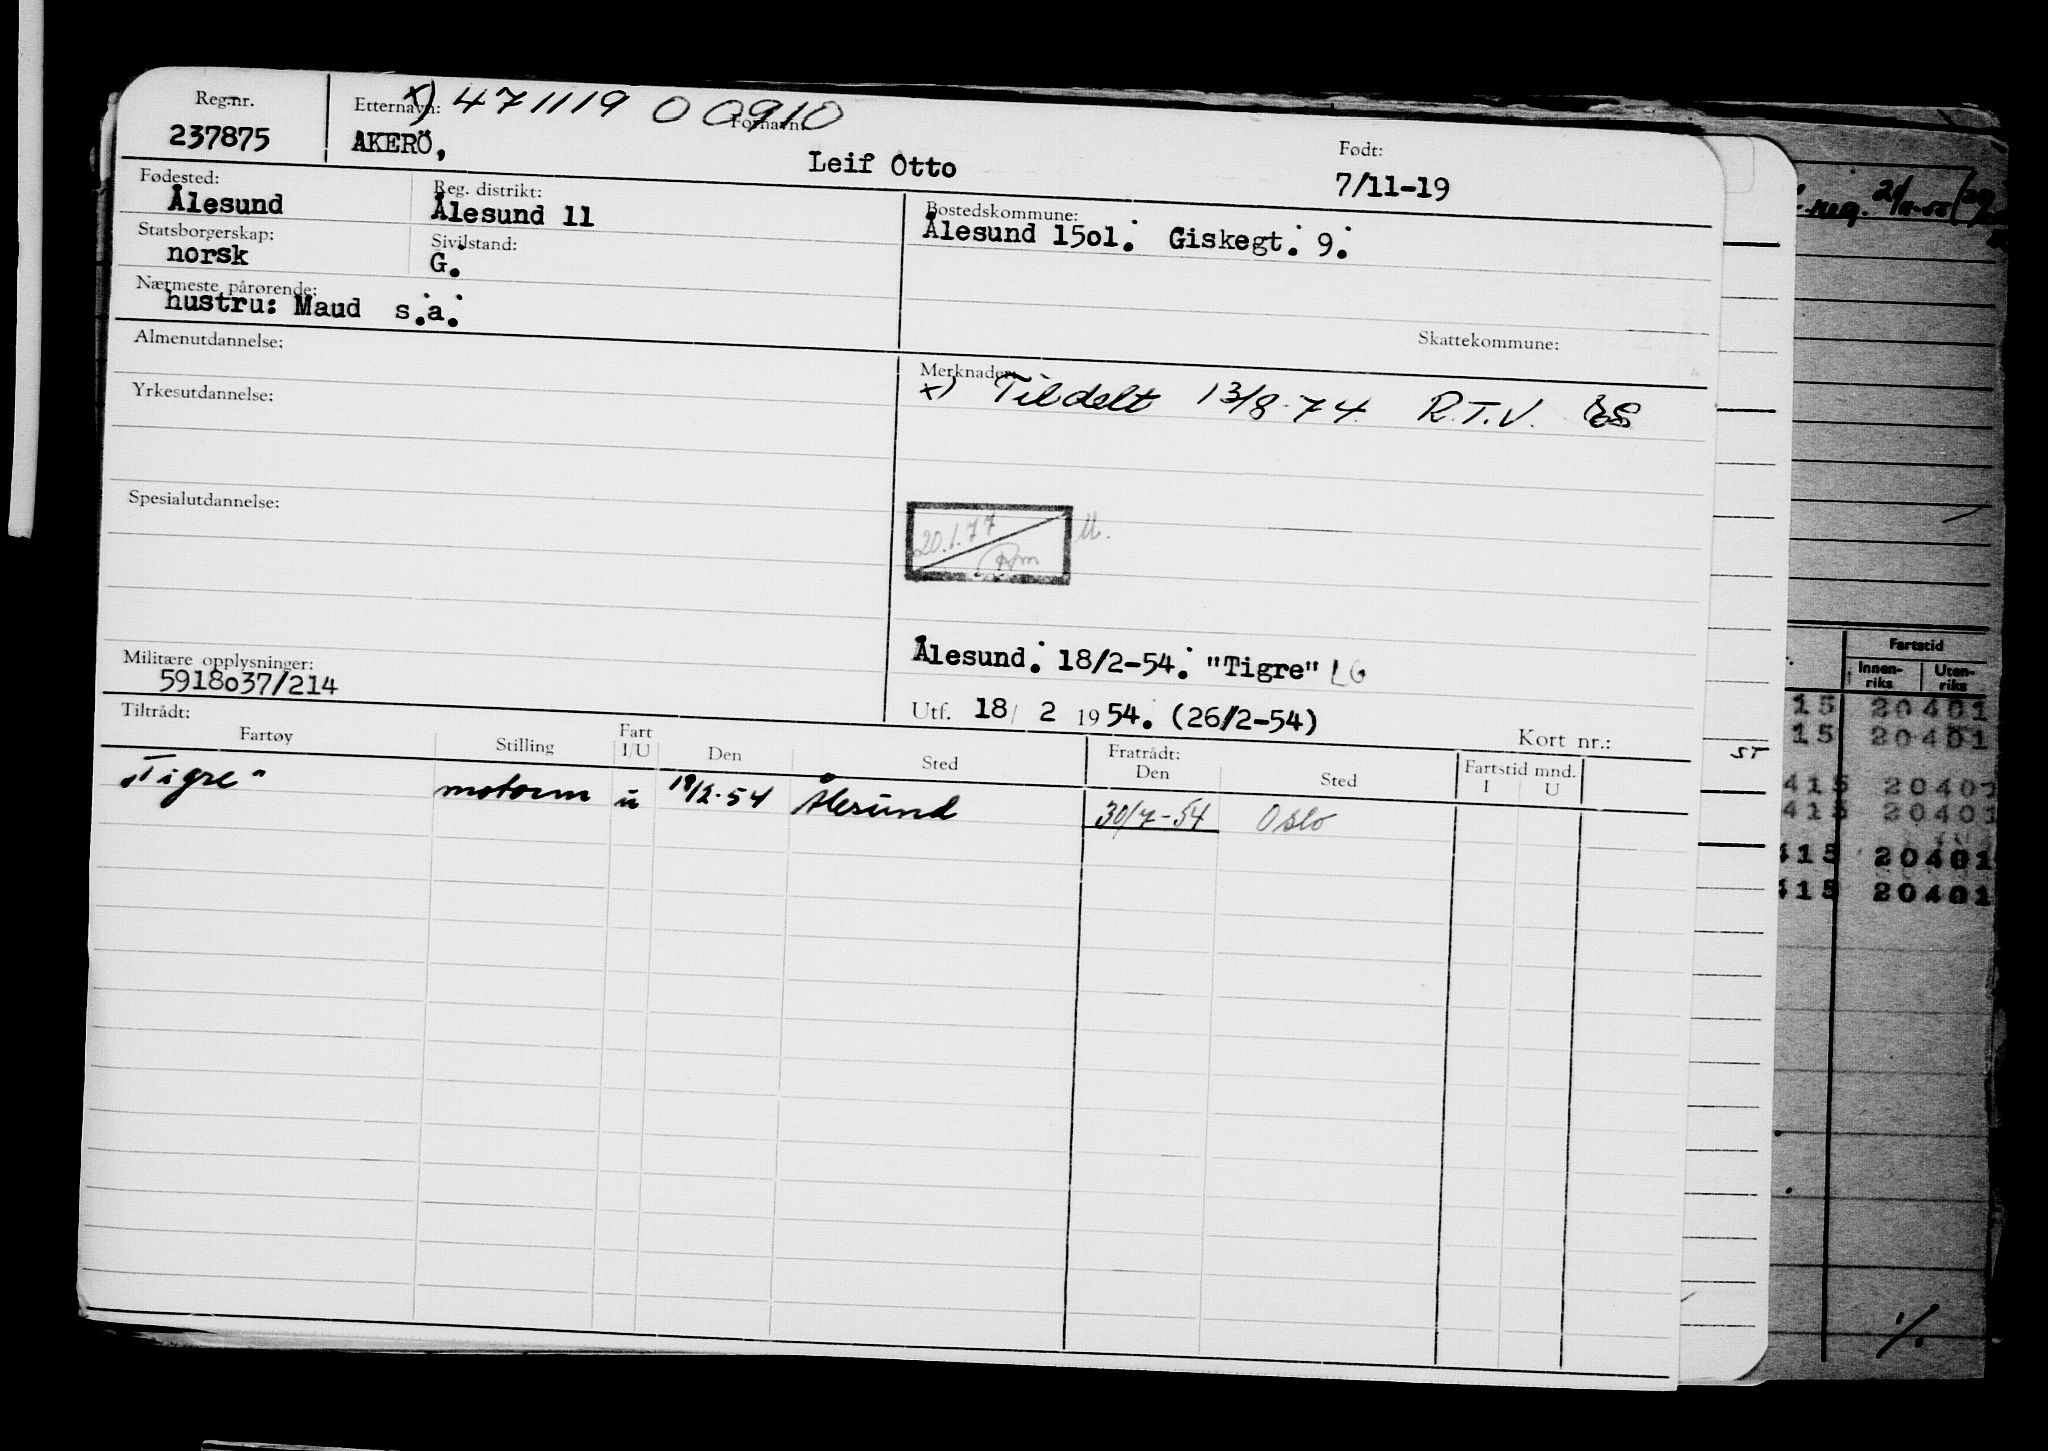 Reg.nr.
237875
Etternavn:
x) 471119 00910
Fornavn:
AKERÖ,
Leif Otto
Født:
7/11-19
Fødested:
Ålesund
Reg. distrikt:
Ålesund 11
Bostedskommune:
Ålesund 15o1. Giskegt. 9.
Statsborgerskap:
norsk
Sivilstand:
G.
Nærmeste pårørende:
hustru: Maud s.a.
Skattekommune:
Almenutdannelse:
Merknader:
x) Tildelt 13/8-74 R.T.V.
Yrkesutdannelse:
Spesialutdannelse:
20.1.77
Ålesund. 18/2-54. "Tigre" LG
Militære opplysninger:
5918o37/214
Utf. 18/ 2 1954. (26/2-54)
Kort nr.:
Tiltrådt:
Fartøy
Stilling
Fart
I/U
Den
Sted
Fratrådt:
Den
Sted
Fartstid mnd.
I U
"Tigre" motorm u 19/2-54 Ålesund 30/7-54 Oslo
ST
Fartstid
Innen-
riks
Uten-
riks
15 20401
15 20401
415 20401
415 20401
415 20401
415 20401